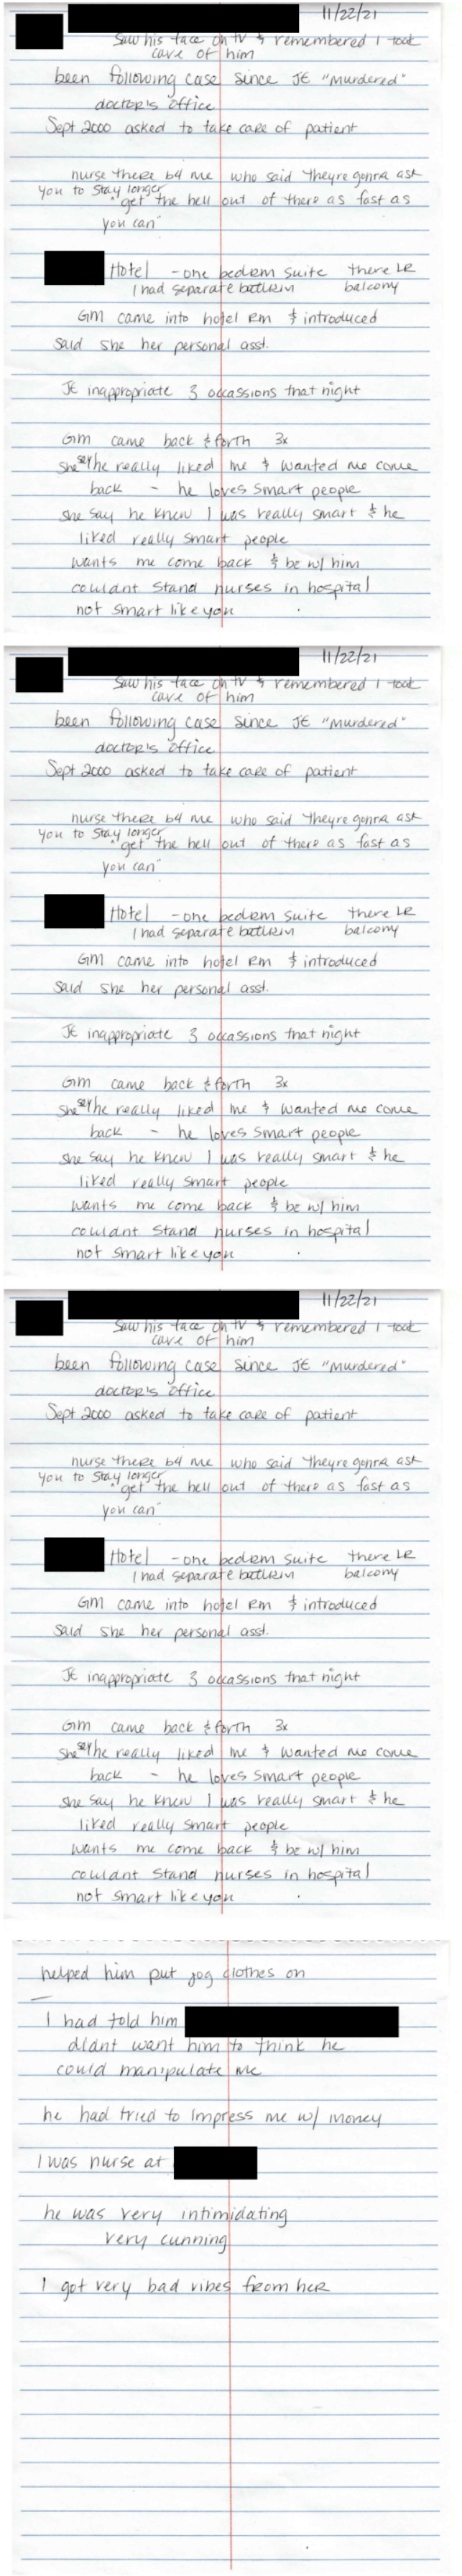 11/22/21
Saw his face on TV & remembered I took
care of him
been following case since JE "murdered"
doctor's office
Sept 2000 asked to take care of patient
nurse there b4 me who said theyre gonna ask
you to stay longer
"get the hell out of there as fast as
you can"
Hotel - one bedrm suite there LR
I had separate bathrm balcony
GM came into hotel rm & introduced
said she her personal asst.
JE inappropriate 3 occassions that night
GM came back & forth 3x
she say he really liked me & wanted me come
back - he loves smart people
she say he knew I was really smart & he
liked really smart people
wants me come back & be w/ him
couldnt stand nurses in hospital
not smart like you
11/22/21
Saw his face on TV & remembered I took
care of him
been following case since JE "murdered"
doctor's office
Sept 2000 asked to take care of patient
nurse there b4 me who said theyre gonna ask
you to stay longer
"get the hell out of there as fast as
you can"
Hotel - one bedrm suite there LR
I had separate bathrm balcony
GM came into hotel rm & introduced
said she her personal asst.
JE inappropriate 3 occassions that night
GM came back & forth 3x
she say he really liked me & wanted me come
back - he loves smart people
she say he knew I was really smart & he
liked really smart people
wants me come back & be w/ him
couldnt stand nurses in hospital
not smart like you
11/22/21
Saw his face on TV & remembered I took
care of him
been following case since JE "murdered"
doctor's office
Sept 2000 asked to take care of patient
nurse there b4 me who said theyre gonna ask
you to stay longer
"get the hell out of there as fast as
you can"
Hotel - one bedrm suite there LR
I had separate bathrm balcony
GM came into hotel rm & introduced
said she her personal asst.
JE inappropriate 3 occassions that night
GM came back & forth 3x
she say he really liked me & wanted me come
back - he loves smart people
she say he knew I was really smart & he
liked really smart people
wants me come back & be w/ him
couldnt stand nurses in hospital
not smart like you
helped him put jog clothes on
I had told him
didnt want him to think he
could manipulate me
he had tried to impress me w/ money
I was nurse at
he was very intimidating
very cunning
I got very bad vibes from her